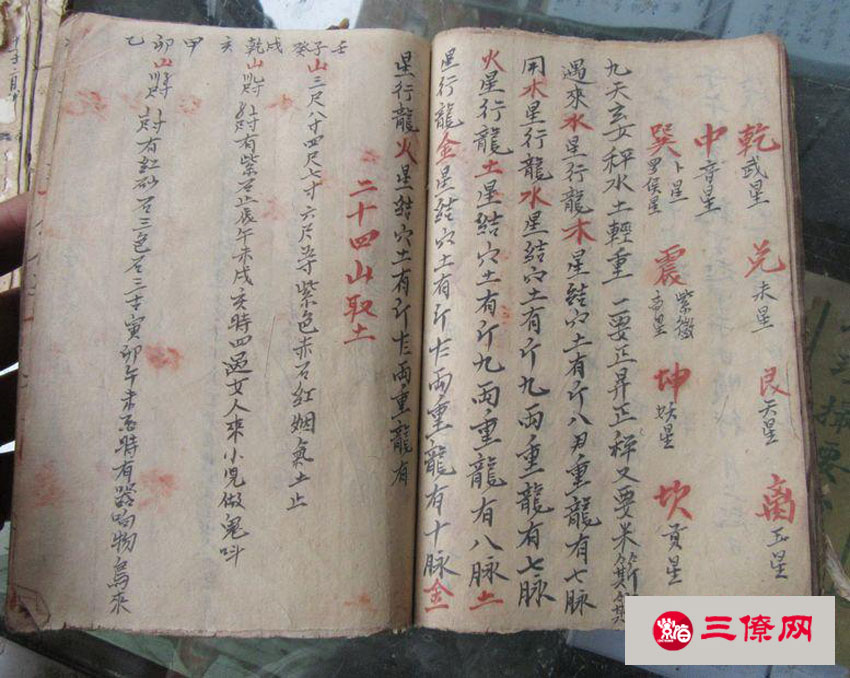 乾武星 兑未星 艮天星 离玉星
中音星
巽卜星罗侯星 震紫微帝星 坤妖星 坎贡星
九天玄女秤水土輕重一要正昇正秤又要米
過來水星行龍木星結穴土有斤八月重龍有七脉
用水星行龍水星結穴土有斤九両重龍有七脉
火星行龍土星結穴土有斤九両重龍有八脉土
星行龍金星結穴土有斤十両重龍有十脉金
星行龍火星結穴土有斤十両重龍有
二十四山取土
壬子癸
山三尺八寸四尺七寸六尺等紫色赤石紅烟氣土止
戌乾亥
山 有紫石止辰午未戌亥時四過女人來小児做鬼叫
甲卯乙
山 有紅砂石三色石三寅卯午未時有器响物烏來
三僚网